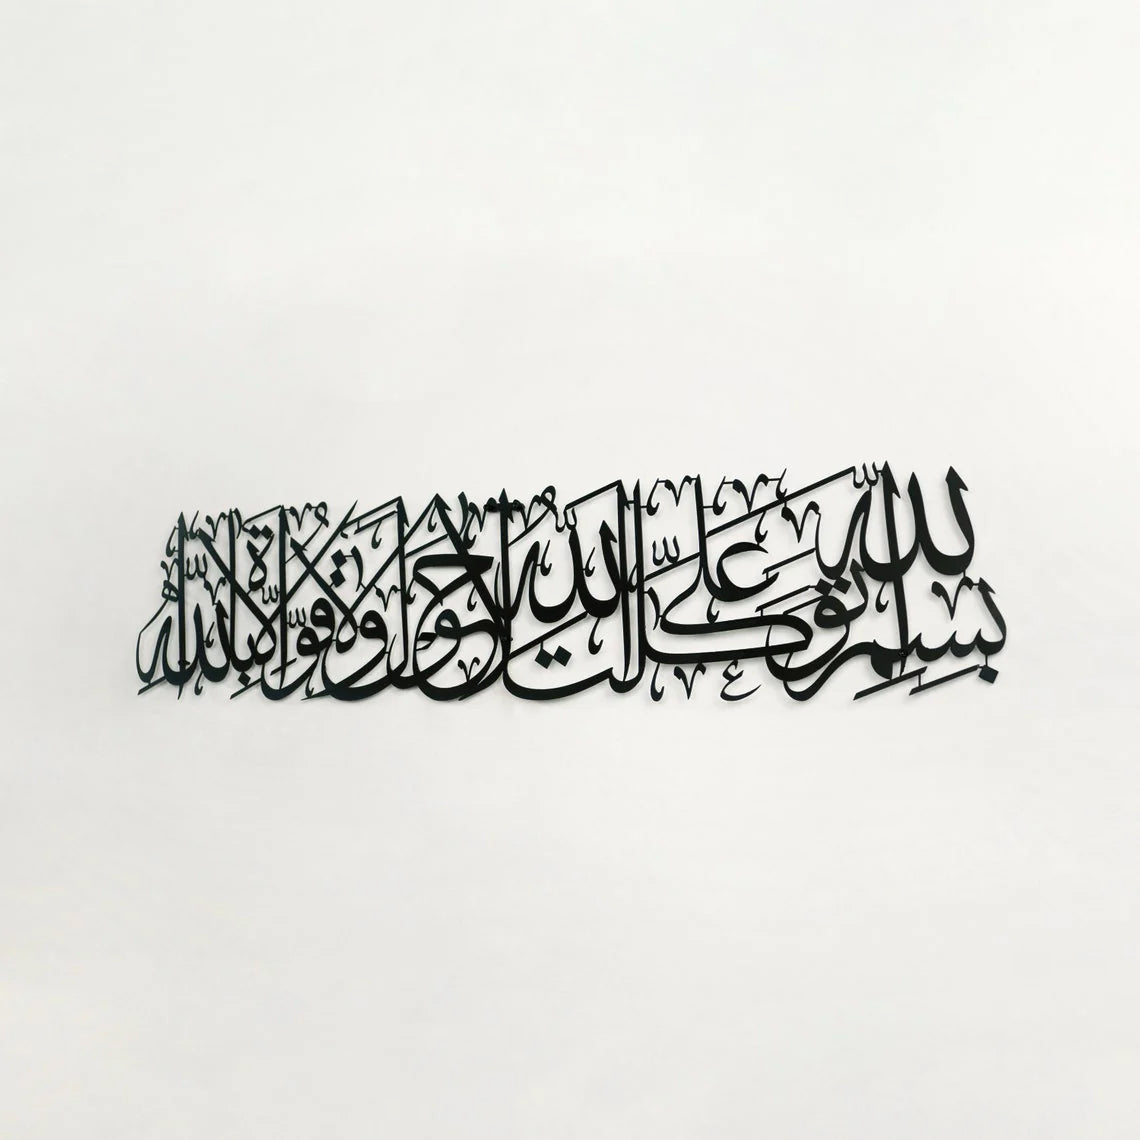 بسم الله توكلت على الله لا حول ولا قوة إلا بالله